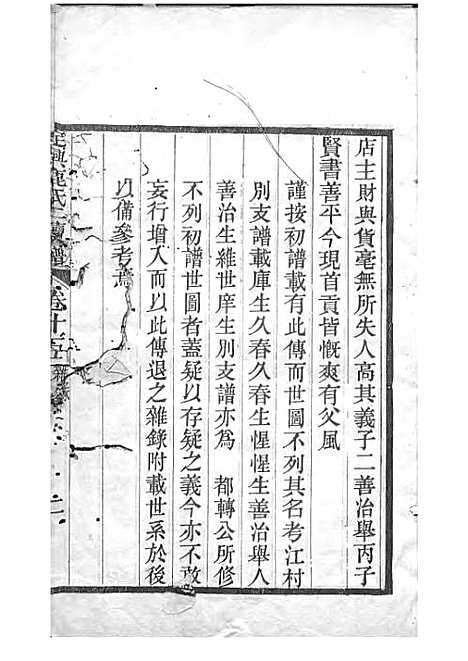 店主財與貨毫無所失人高其義子二善治舉丙子
賢書善平今現首貢皆慨爽有父風
謹按初譜載有此傳而世圖不列其名考江村
別支譜載庫生久春久春生惺惺生善治舉人
善治生維世庠生別支譜亦為 都轉公所修
不列初譜世圖者蓋疑以存疑之義今亦不敢
妄行增入而以此傳退之雜錄附載世系於後
以備參考焉
定興鹿氏二續譜 卷十五 雜錄